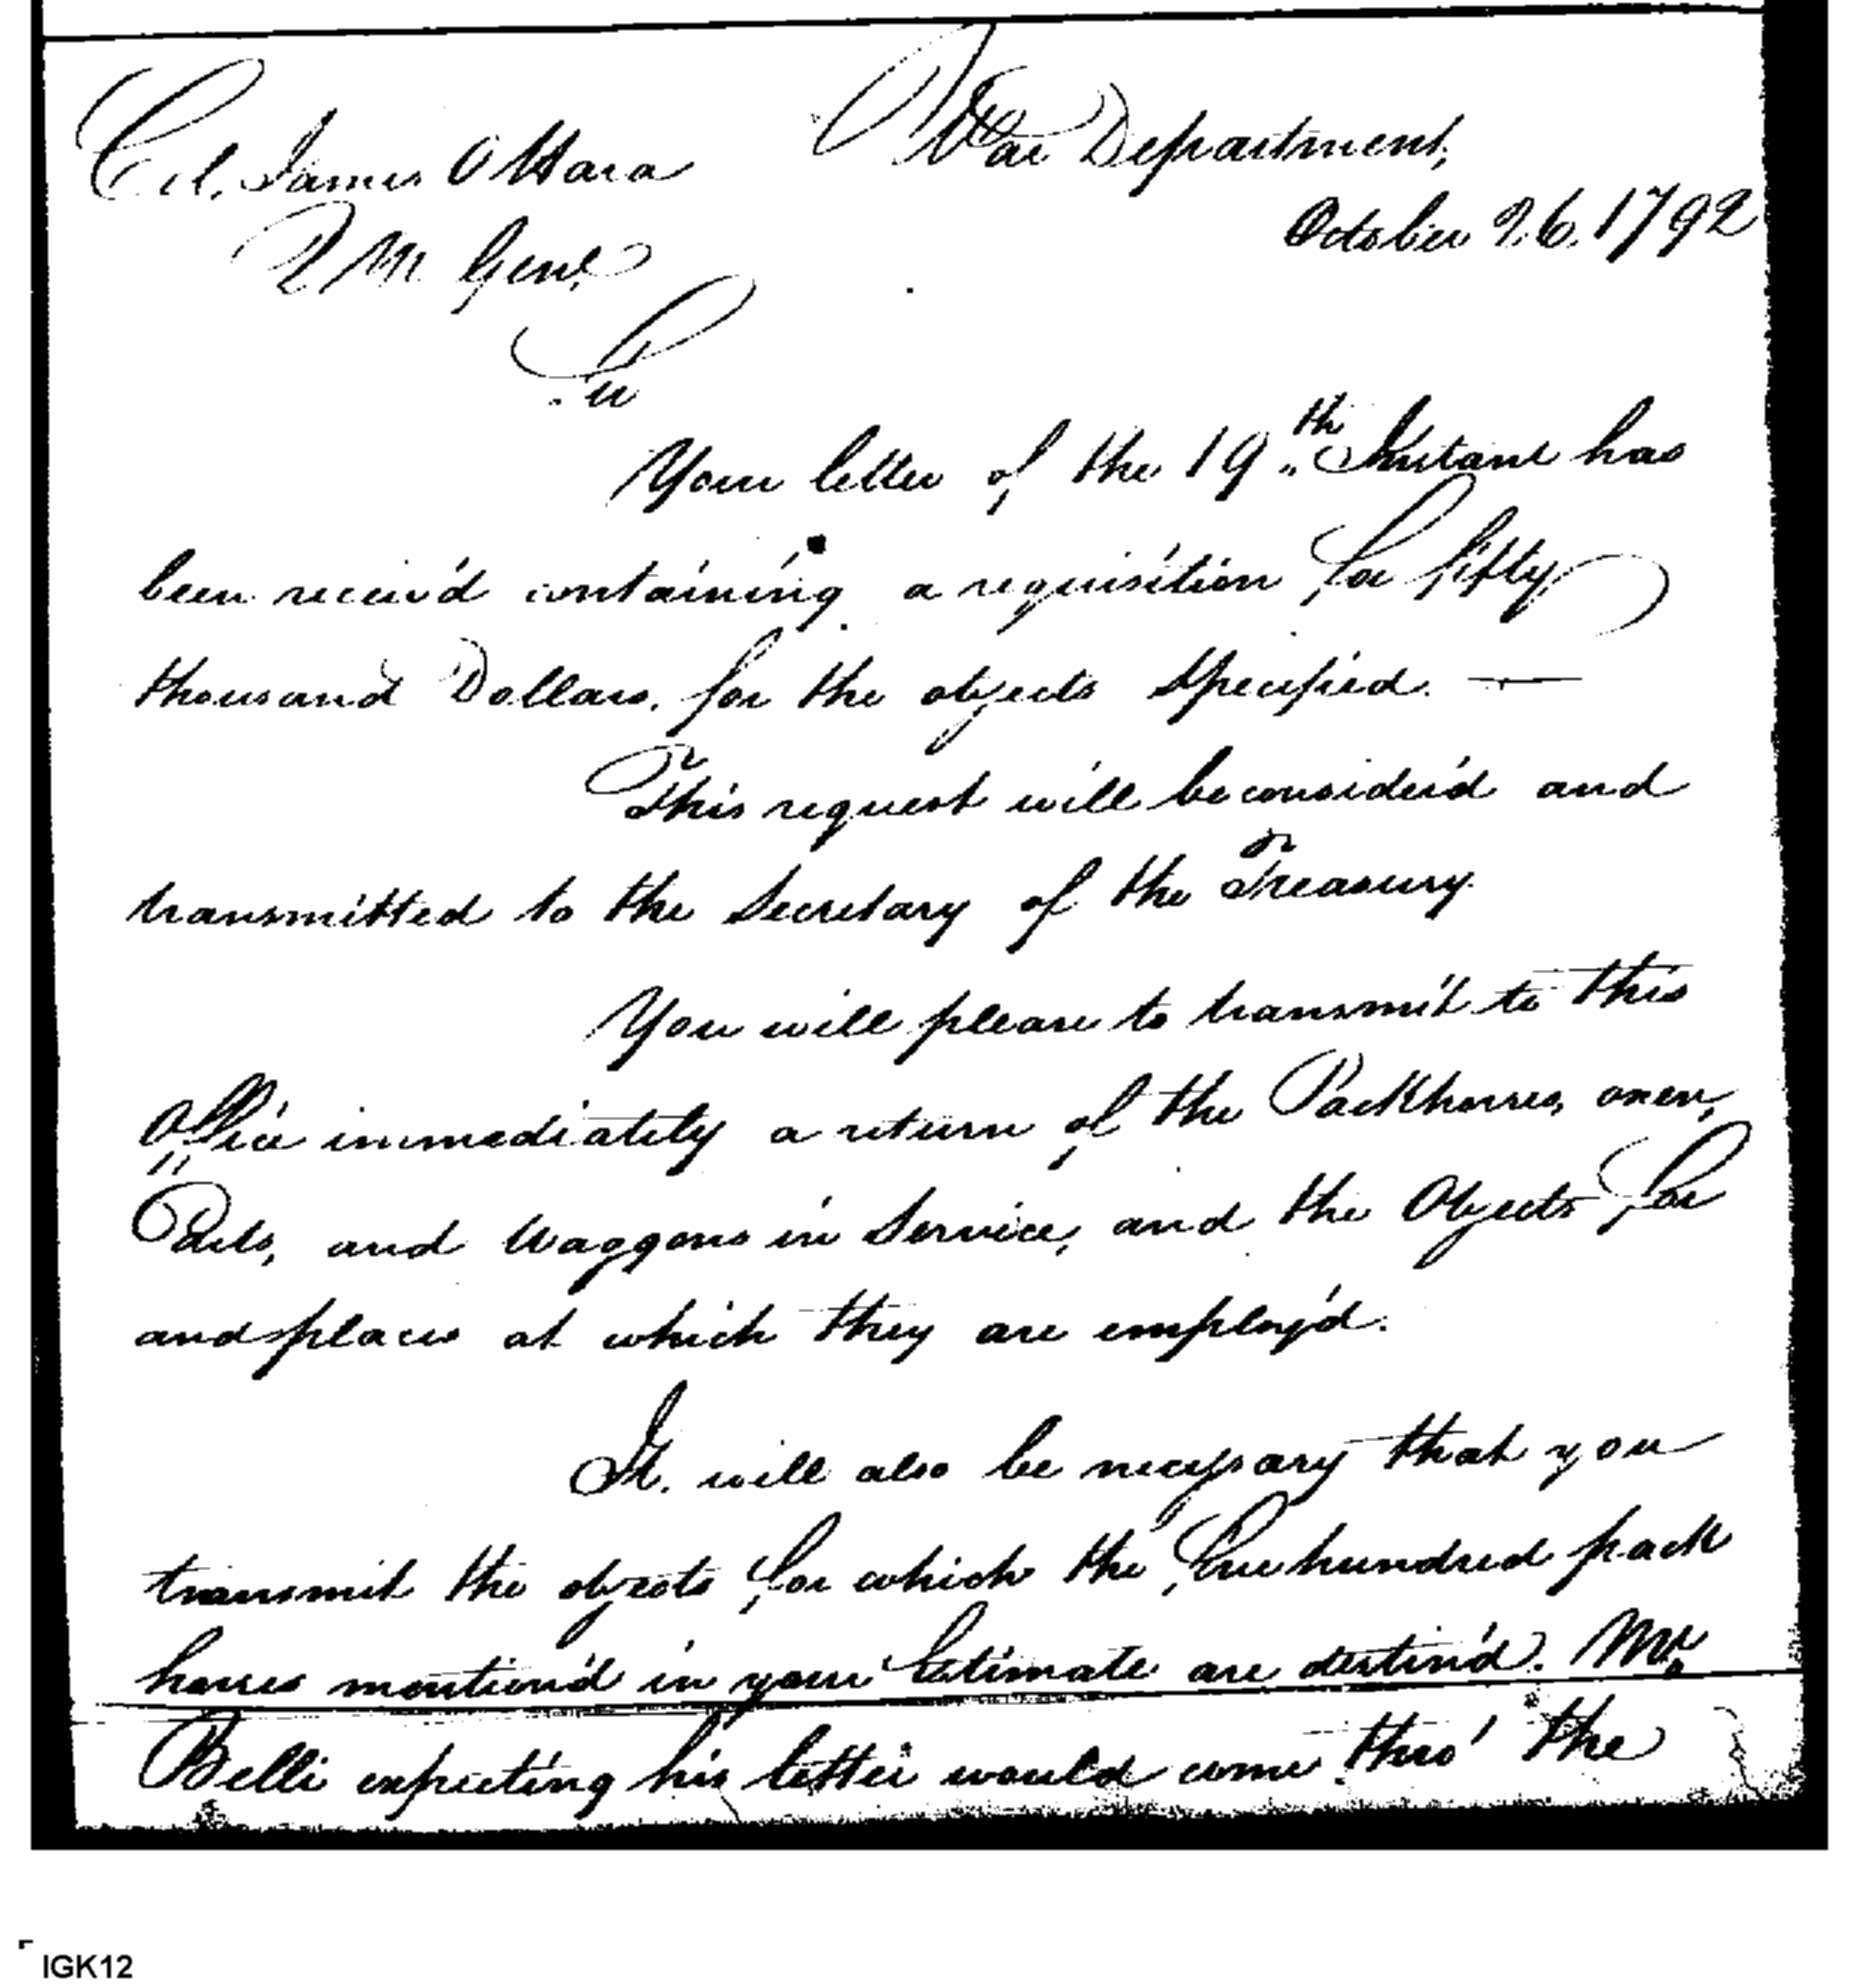 Col. James OHara
War Department,
October 26. 1792
Q M Genl.
Sir
Your letter of the 19th Instant has
been receiv'd containing a requisition for fifty
thousand Dollars, for the objects specified. —
This request will be consider'd and
transmitted to the Secretary of the Treasury.
You will please to transmit to this
Office immediately a return of the Packhorses, oxen,
and Waggons in Service, and the Objects for
and places at which they are employ'd.
It will also be necessary that you
transmit the objects for which the hundred pack
horses mention'd in your Estimate are destin'd. Mr.
Belli expecting his letter would come thro' the
IGK12